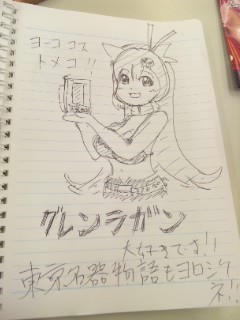 ヨーココス
トメコ!!
グレンラガン
大好きでよ!!
東京名器物語もヨロシク
ネ!!